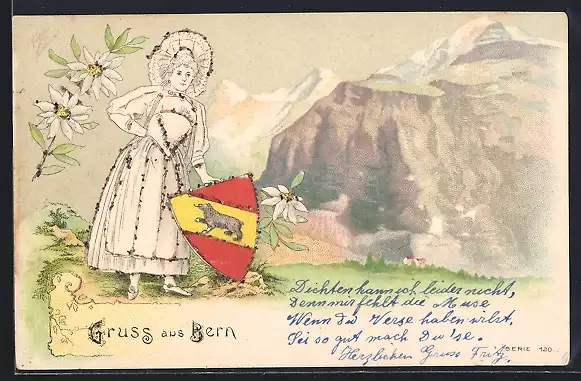 Dichten kann ich leider nicht,
Denn mir fehlt die Muse
Wenn Du Verse haben wirst,
Sei so gut mach Du'se.
Herzlichen Gruss Fritz.
Gruss aus Bern
SERIE 120.